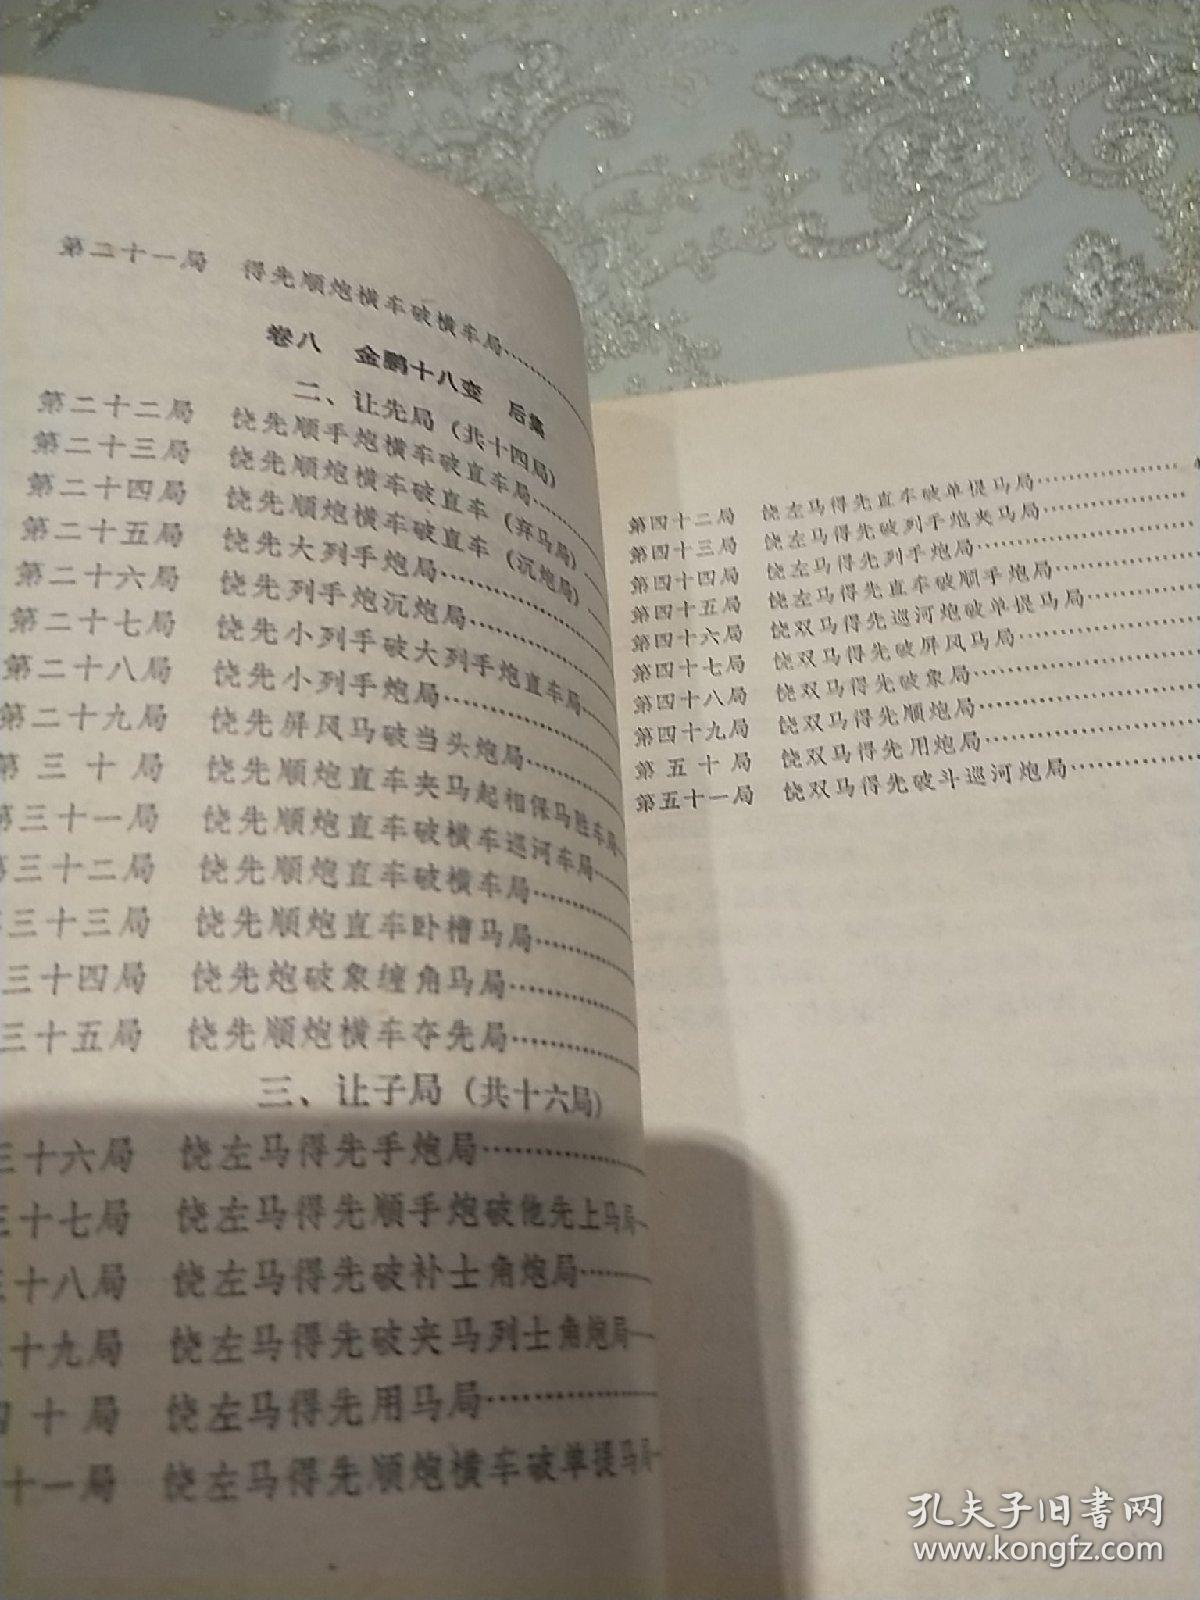 第二十一局　得先顺炮横车破横车局……
卷八　金鹏十八变　后集
二、让先局（共十四局）
第二十二局　饶先顺手炮横车破直车局……
第二十三局　饶先顺炮横车破直车（弃马局）……
第二十四局　饶先顺炮横车破直车（沉炮局）……
第二十五局　饶先大列手炮局……
第二十六局　饶先列手炮沉炮局……
第二十七局　饶先小列手破大列手炮直车局……
第二十八局　饶先小列手炮局……
第二十九局　饶先屏风马破当头炮局……
第三十局　饶先顺炮直车夹马起相保马胜车局
第三十一局　饶先顺炮直车破横车巡河车局……
第三十二局　饶先顺炮直车破横车局……
三十三局　饶先顺炮直车卧槽马局……
三十四局　饶先炮破象缠角马局……
三十五局　饶先顺炮横车夺先局……
三、让子局（共十六局）
三十六局　饶左马得先手炮局……
三十七局　饶左马得先顺手炮破他先上马局
三十八局　饶左马得先破补士角炮局……
十九局　饶左马得先破夹马列士角炮局
四十局　饶左马得先用马局……
十一局　饶左马得先顺炮横车破单提马局
第四十二局　饶左马得先直车破单提马局……
第四十三局　饶左马得先破列手炮夹马局……
第四十四局　饶左马得先列手炮局……
第四十五局　饶左马得先直车破顺手炮局……
第四十六局　饶双马得先巡河炮破单提马局……
第四十七局　饶双马得先破屏风马局……
第四十八局　饶双马得先破象局……
第四十九局　饶双马得先顺炮局……
第五十局　饶双马得先用炮局……
第五十一局　饶双马得先破斗巡河炮局……
孔夫子旧书网
www.kongfz.com